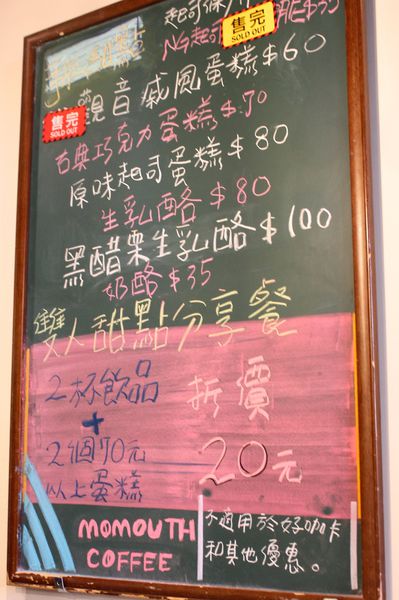 售完
SOLD OUT
觀音戚風蛋糕$60
售完
SOLD OUT
古典巧克力蛋糕$70
原味起司蛋糕$80
生乳酪$80
黑醋栗生乳酪$100
奶酪$35
雙人甜點分享餐
2杯飲品
+
2個70元
以上蛋糕
折價
20元
MOMOUTH
COFFEE
不適用於好咖卡
和其他優惠。